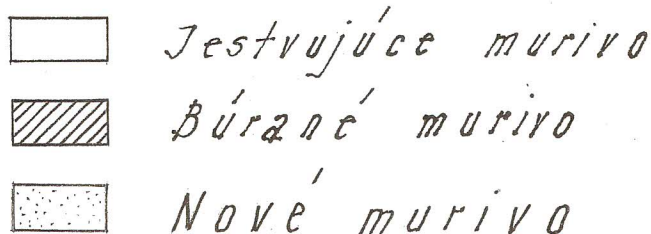 Jestvujúce murivo
Búrané murivo
Nové murivo